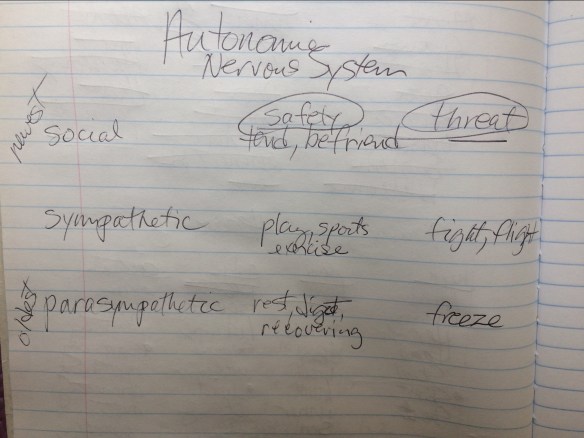 Autonomic
Nervous System
safety threat
newest social tend, befriend
sympathetic play, sports fight, flight
exercise
oldest parasympathetic rest, digest, freeze
recovering